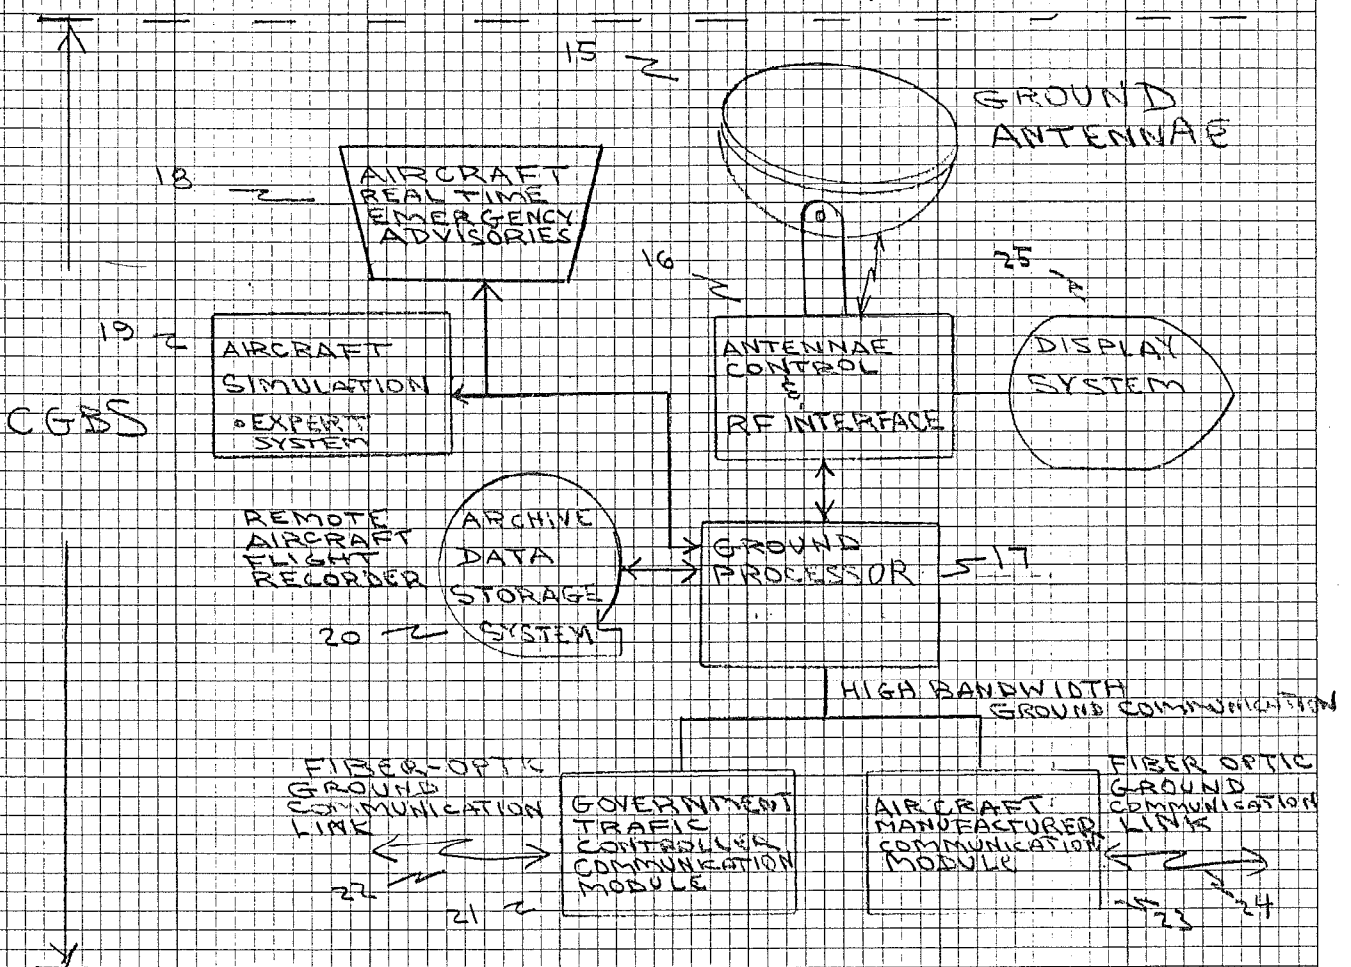 15
GROUND
ANTENNAE
18
AIRCRAFT
REAL TIME
EMERGENCY
ADVISORIES
16
25
19
AIRCRAFT
SIMULATION
• EXPERT
SYSTEM
ANTENNAE
CONTROL
&
RF INTERFACE
DISPLAY
SYSTEM
CGBS
REMOTE
AIRCRAFT
FLIGHT
RECORDER
ARCHIVE
DATA
STORAGE
SYSTEM
20
GROUND
PROCESSOR
17
HIGH BANDWIDTH
GROUND COMMUNICATION
FIBER-OPTIC
GROUND
COMMUNICATION
LINK
22
21
GOVERNMENT
TRAFIC
CONTROLLER
COMMUNICATION
MODULE
AIRCRAFT
MANUFACTURER
COMMUNICATION
MODULE
FIBER OPTIC
GROUND
COMMUNICATION
LINK
23
24